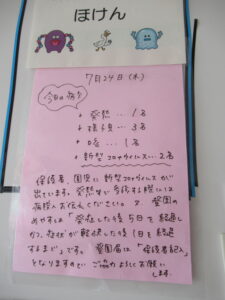 ほけん
7月24日(木)
今日の病気
・発熱…1名
・咳…1名
・新型コロナウイルス…2名
保育者、園児に新型コロナウイルスが
出ています。発熱等で受診する際には
病院へお伝えください。
めやすは「発症した後5日を経過し
かつ、症状が軽快した後1日を経過
するまで」です。登園届は「保護者記入」
となりますので ご協力よろしくお願い
します。